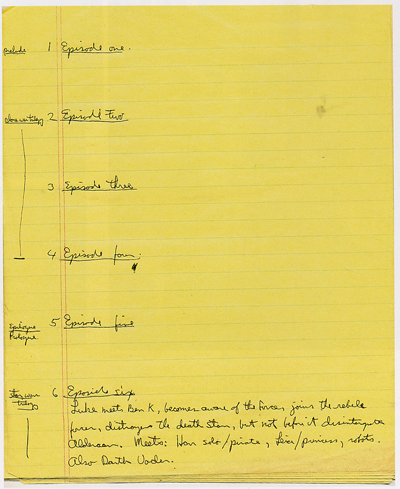 prelude 1 Episode one.
clone war trilogy 2 Episode Two
3 Episode three
4 Episode four:
Epilogue 5 Episode five
Prologue.
Star wars 6 Eposide six
trilogy Luke meets Ben K, becomes aware of the force, joins the rebels
forces, distroyes the death star, but not befor it disintegrates
Alderaan. Meets: Han solo/pirate, Leia/princess, robots.
Also Darth Vader.